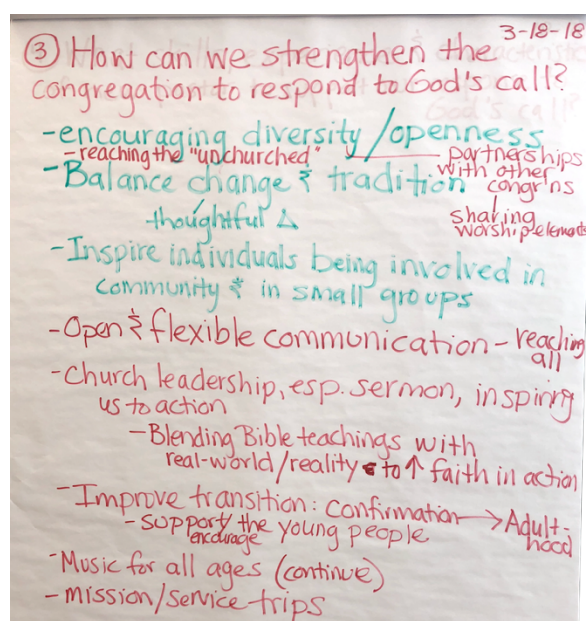 3-18-18
③ How can we strengthen the
congregation to respond to God's call?
-encouraging diversity/openness
-reaching the "unchurched"
partnerships
with other
congr'ns
sharing
worship elements
-Balance change & tradition
thoughtful Δ
-Inspire individuals being involved in
community & in small groups
-Open & flexible communication - reaching
all
-Church leadership, esp. sermon, inspiring
us to action
-Blending Bible teachings with
real-world/reality to ↑ faith in action
-Improve transition: confirmation → Adult-
hood
-support/the young people
encourage
-Music for all ages (continue)
-mission/service trips